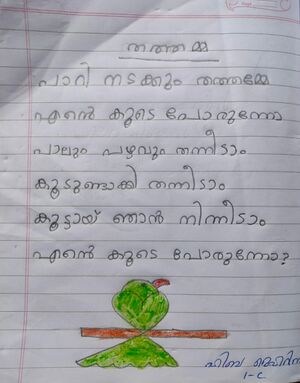 തത്തമ്മ
പാറി നടക്കും തത്തമ്മേ
എന്റെ കൂടെ പോരുന്നോ
പാലും പഴവും തന്നീടാം
കൂടുണ്ടാക്കി തന്നീടാം
കൂട്ടായ് ഞാൻ നിന്നീടാം
എന്റെ കൂടെ പോരുന്നോ?
ഹിബ
1-C